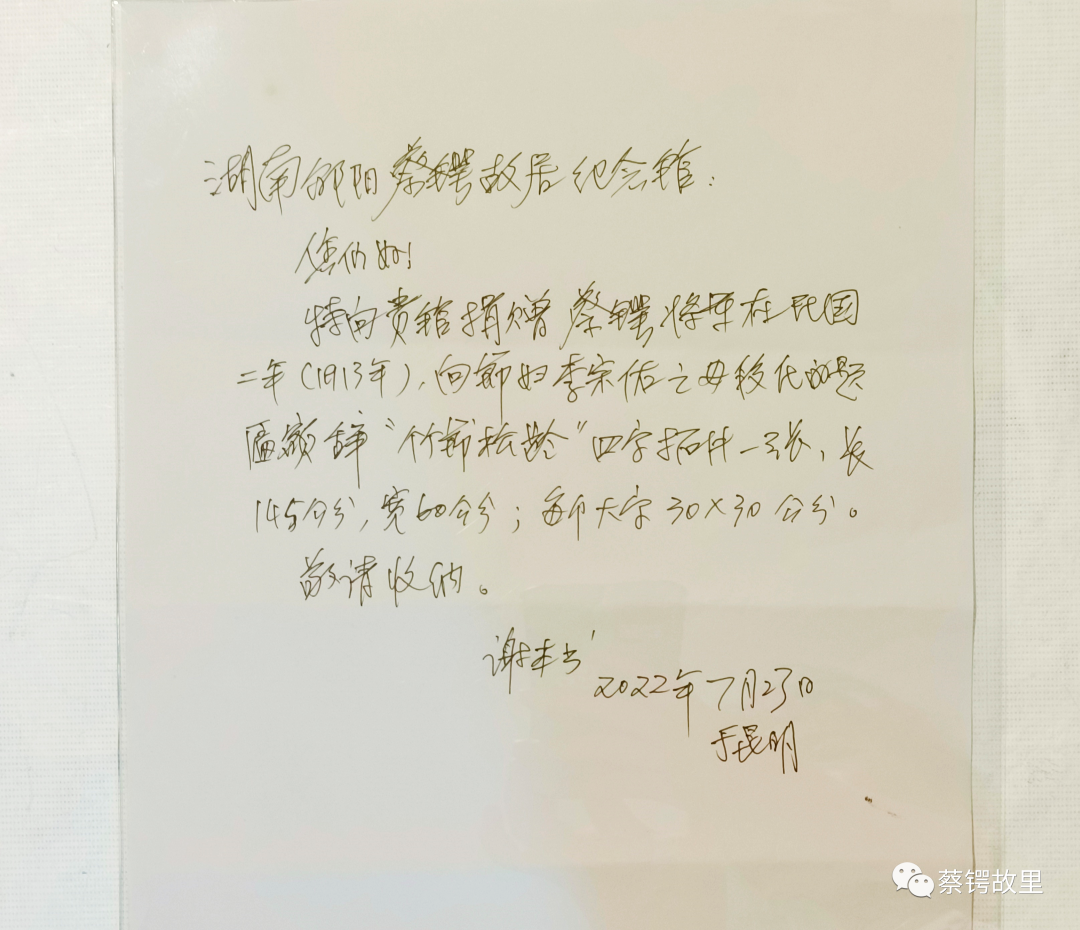 湖南邵阳蔡锷故居纪念馆:
您们好!
特向贵馆捐赠蔡锷将军在民国
二年(1913年),向节妇李宗佑之母移氏的题
匾额辞“竹节松龄”四字拓片一张,长
145公分,宽60公分;每个大字30×30公分。
敬请收纳。
谢丰书
2022年7月23日
于昆明
蔡锷故里